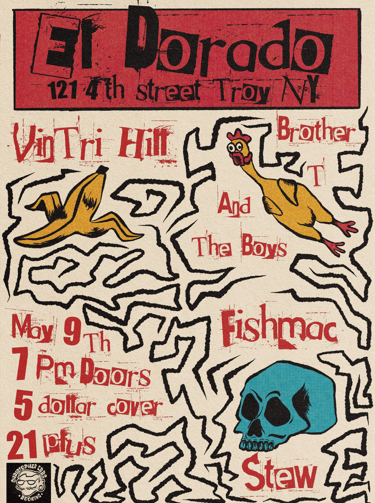 El Dorado
121 4th street Troy NY.
VinTri Hill
Brother
T
And
The Boys
May 9Th
7 PmDoors
5 dollar cover
21 plus
Fishmac
Stew